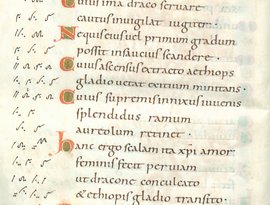 Cuius ima draco servare
cautus invigilat iugiter.
Nequis eius vel primum gradum
possit insaucius scandere
Cuius ascensus extracto aethiops
gladio vetat certum minitans.
Cuius supremis innixus iuvenis
splendidus ramum
aureolum retinet.
hanc ergo scalam ita xpi amor
feminis fecit perviam
ut dracone conculcato
& ethiopis gladio transito.